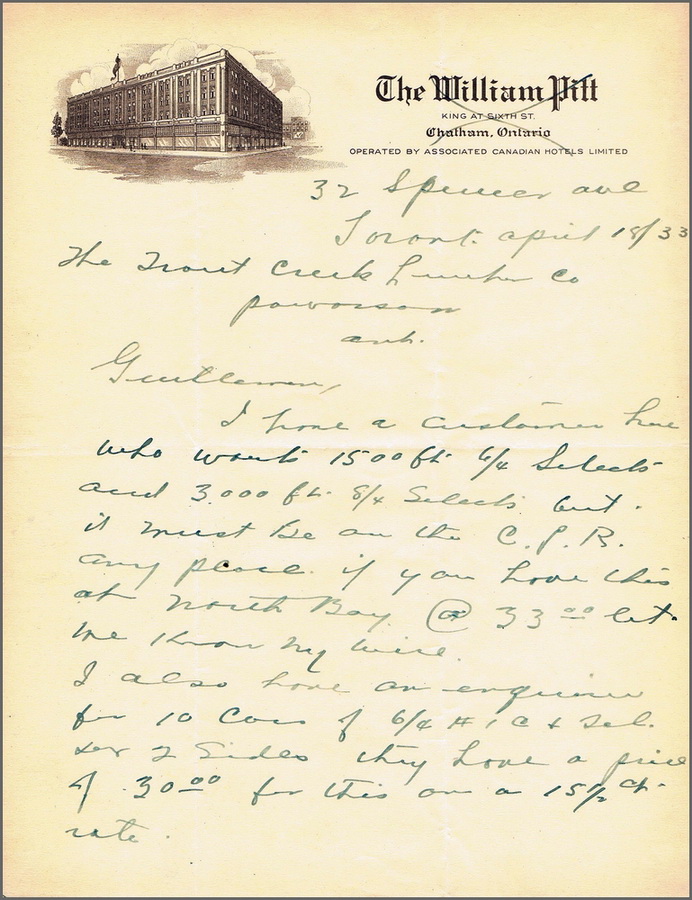 The William Pitt
KING AT SIXTH ST.
Chatham, Ontario
OPERATED BY ASSOCIATED CANADIAN HOTELS LIMITED
32 Spencer ave
Toront. april 18/33
The Trout Creek Lumber Co
powasson
ont.
Gentlemen,
I have a customer here
who wants 1500 ft 6/4 Selects
and 3.000 ft. 8/4 Selects but.
it must be on the C. P. R.
any place. if you have this
at North Bay @ 33 00 let.
me know my wire.
I also have an enquirie
for 10 Cars of 6/4 # 1 C & Sel.
2 Sides they have a price
of 30 00 for this on a 15 1/2 ct.
rate.